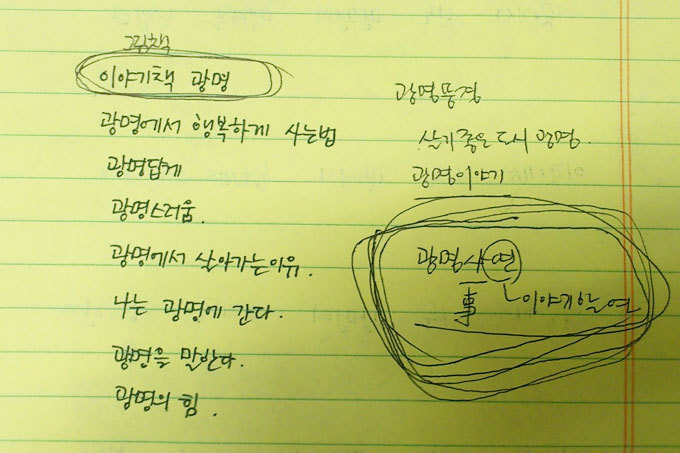 그림책
이야기책 광명
광명에서 행복하게 사는법
광명답게
광명스러움.
광명에서 살아가는이유.
나는 광명에 간다.
광명을 말한다.
광명의 힘.
광명풍경
살기좋은 도시 광명.
광명이야기
광명사연
事 이야기할연